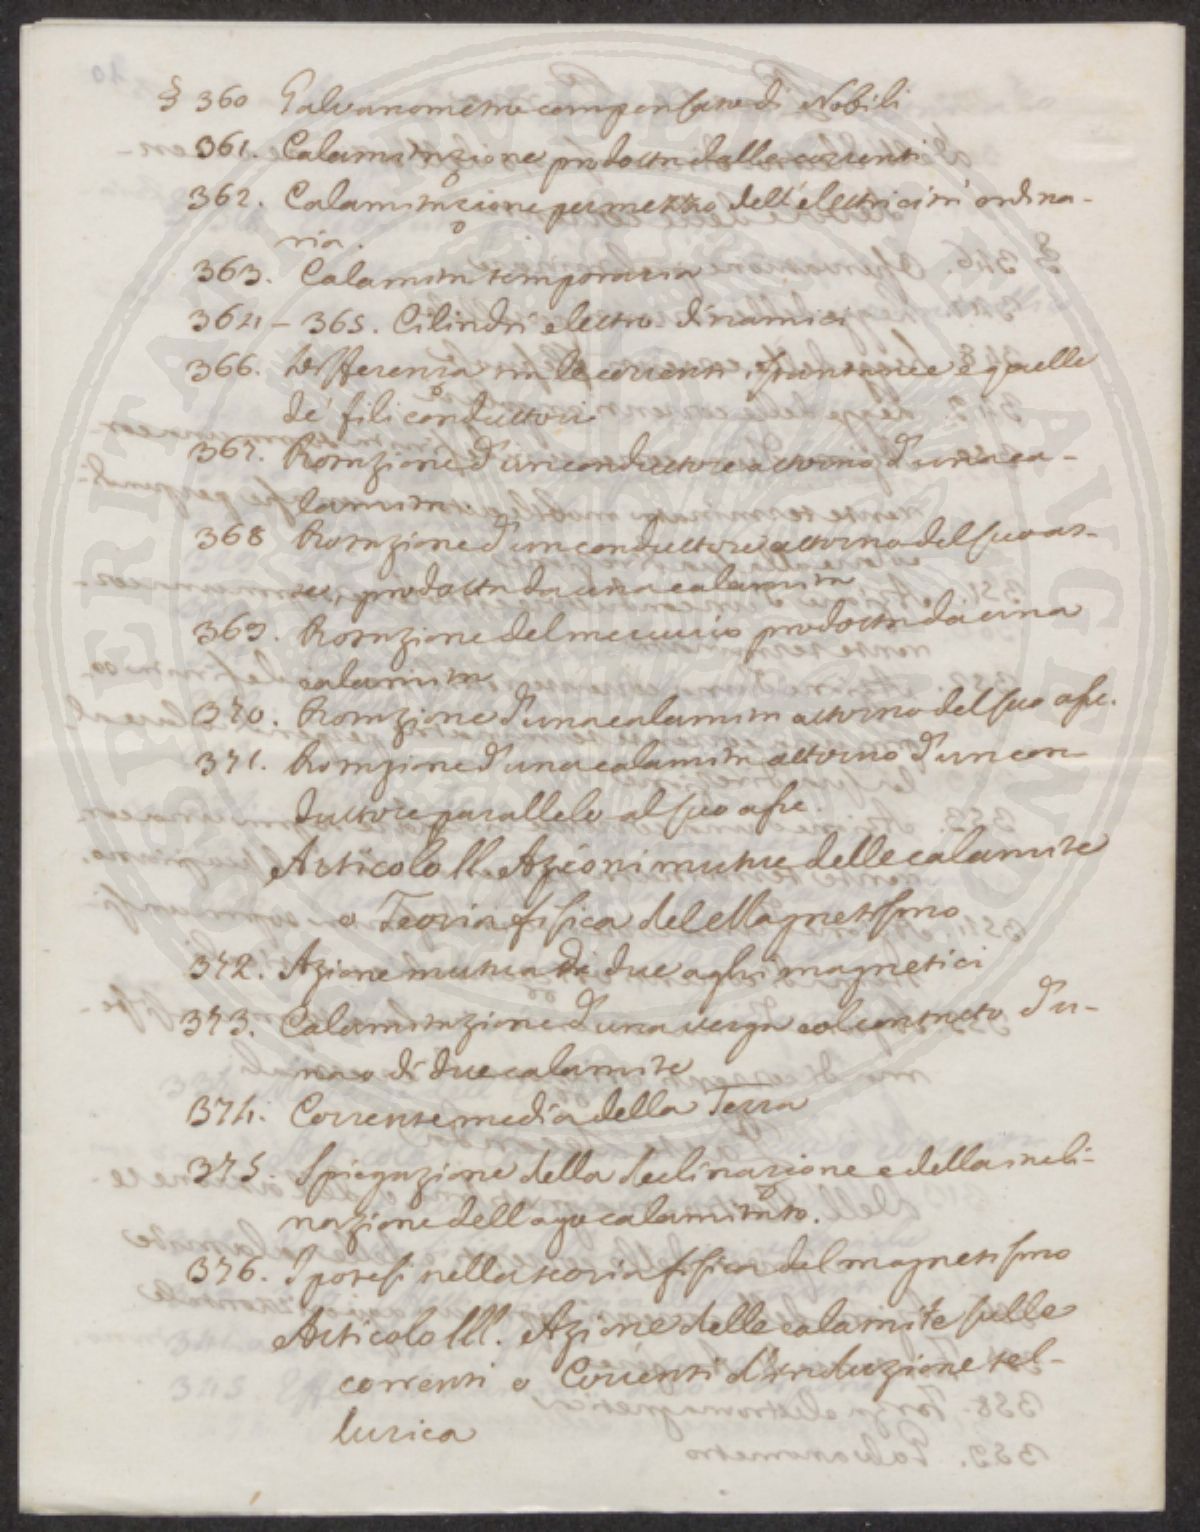 § 360 Galvanometro compensatore di Nobili
361. Calamitazione prodotta dalle correnti
362. Calamitazione per mezzo dell'elettricità ordina-
ria.
363. Calamita temporaria
364 – 365. Cilindri elettro dinamici
366. Differenza tra le correnti spontanee e quelle
de' fili conduttori
367. Rotazione d'un conduttore attorno d'una ca-
lamita
368 Rotazione d'un conduttore attorno del suo as-
se, prodotta da una calamita
369. Rotazione del mercurio prodotta da una
calamita
370. Rotazione d'una calamita attorno del suo asse.
371. Rotazione d'una calamita attorno d'un con-
duttore parallelo al suo asse.
Articolo II. Azioni mutue delle calamite
o Teoria fisica del Magnetismo
372. Azione mutua di due aghi magnetici
373. Calamitazione d'una verga col contatto d'u-
na o di due calamite
374. Corrente media della Terra
375. Spiegazione della declinazione e della incli-
nazione dell'ago calamitato.
376. Ipotesi nella teoria fisica del magnetismo
Articolo III. Azione delle calamite sulle
correnti o Correnti d'induzione tel-
lurica
PROSPERITATI PVBLICAE AVGENDAE